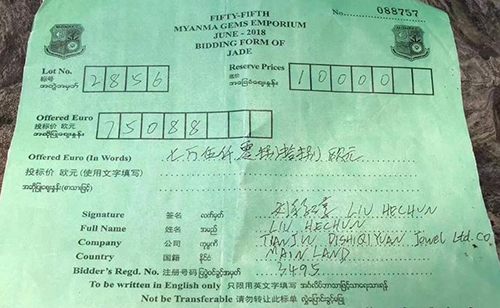 No. 088757
FIFTY-FIFTH
MYANMA GEMS EMPORIUM
JUNE - 2018
BIDDING FORM OF
JADE
Lot No.
标号
အတွဲအမှတ်
2856
Reserve Prices
底价
10000
Offered Euro
投标价 欧元
75088
Offered Euro (In Words) 七万伍仟零捌拾捌 欧元
投标价 欧元 (使用文字填写)
Signature 签名 လက်မှတ် LIU HECHUN
Full Name 姓名 အမည် LIU HECHUN
Company 公司 ကုမ္ပဏီ TIANJIN DISHIQIYUAN Jewel Ltd. Co
Country 国籍 နိုင်ငံ MAIN LAND
Bidder's Regd. No. 注册号码 3495
To be written in English only 只限用英文字填写
Not be Transferable 请勿转让此标单